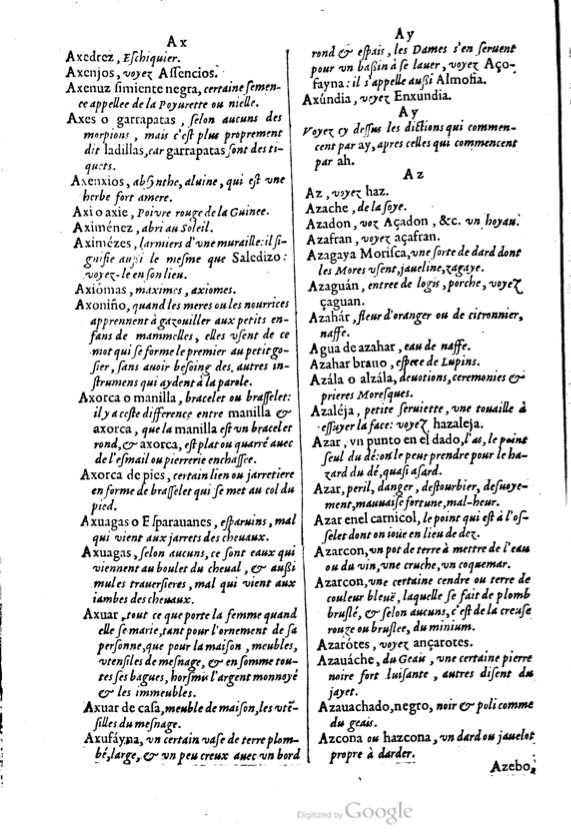 Ax
Axedrez, Eſchiquier.
Axenjos, voyez Aſſencios.
Axenuz ſimiente negra, certaine ſemen-
ce appellee de la Poyurette ou nielle.
Axes o garrapatas, ſelon aucuns des
morpions, mais c'eſt plus proprement
dit ladillas, car garrapatas ſont des ti-
quets.
Axenxios, abſynthe, aluine, qui eſt vne
herbe fort amere.
Axi o axie, Poivre rouge de la Guinee.
Aximénez, abri au Soleil.
Aximézes, larmiers d'vne muraille: il ſi-
gnifie auſsi le meſme que Saledizo:
voyez-le en ſon lieu.
Axiómas, maximes, axiomes.
Axoniño, quand les meres ou les nourrices
apprennent à gazouiller aux petits en-
fans de mammelles, elles vſent de ce
mot qui ſe forme le premier au petit go-
ſier, ſans avoir beſoing des autres in-
ſtrumens qui aydent à la parole.
Axorca o manilla, bracelet ou braſſelet:
il y a ceſte difference entre manilla &
axorca, que la manilla eſt vn bracelet
rond, & axorca, eſt plat ou quarré auec
de l'eſmail ou pierrerie enchaſſee.
Axorca de pies, certain lien ou jarretiere
en forme de braſſelet qui ſe met au col du
pied.
Axuagas o Eſparauanes, eſparuins, mal
qui vient aux jarrets des cheuaux.
Axuagas, ſelon aucuns, ce ſont eaux qui
viennent au boulet du cheual, & auſsi
mules trauerſieres, mal qui vient aux
iambes des cheuaux.
Axuar, tout ce que porte la femme quand
elle ſe marie, tant pour l'ornement de ſa
perſonne, que pour la maiſon, meubles,
vtenſiles de meſnage, & en ſomme tou-
tes ſes bagues, horſmis l'argent monnoyé
& les immeubles.
Axuar de caſa, meuble de maiſon, les vtē-
ſilles du meſnage.
Axufáyna, vn certain vaſe de terre plom-
bé, large, & vn peu creux auec vn bord
Ay
rond & eſpais, les Dames s'en ſeruent
pour vn baſsin à ſe lauer, voyez Aço-
fayna: il s'appelle auſsi Almofia.
Axúndia, voyez Enxundia.
Ay
Voyez cy deſſus les dictions qui commen-
cent par ay, apres celles qui commencent
par ah.
Az
Az, voyez haz.
Azache, de la ſoye.
Azadon, voz Açadon, &c. vn hoyau.
Azafran, voyez açafran.
Azagaya Moriſca, vne ſorte de dard dont
les Mores vſent, jaueline, zagaye.
Azaguán, entree de logis, porche, voyez
çaguan.
Azahár, fleur d'oranger ou de citronnier,
naffe.
Agua de azahar, eau de naffe.
Azahar brauo, eſpece de Lupins.
Azála o alzála, deuotions, ceremonies &
prieres Moreſques.
Azaléja, petite ſeruiette, vne touaille à
eſſuyer la face: voyez hazaleja.
Azar, vn punto en el dado, l'as, le point
ſeul du dé: on le peut prendre pour le ha-
zard du dé, quaſi aſard.
Azar, peril, danger, deſtourbier, deſuoye-
ment, mauuaiſe fortune, mal-heur.
Azar en el carnicol, le point qui eſt à l'oſ-
ſelet dont on ioue en lieu de dez.
Azarcon, vn pot de terre à mettre de l'eau
ou du vin, vne cruche, vn coquemar.
Azarcon, vne certaine cendre ou terre de
couleur bleuë, laquelle ſe fait de plomb
bruſlé, & ſelon aucuns, c'eſt de la ceruſe
rouge ou bruſlee, du minium.
Azarótes, voyez ançarotes.
Azauáche, du Geau, vne certaine pierre
noire fort luiſante, autres diſent du
jayet.
Azauachado, negro, noir & poli comme
du geais.
Azcona ou hazcona, vn dard ou jauelot
propre à darder.
Azebo,
Digitized by Google